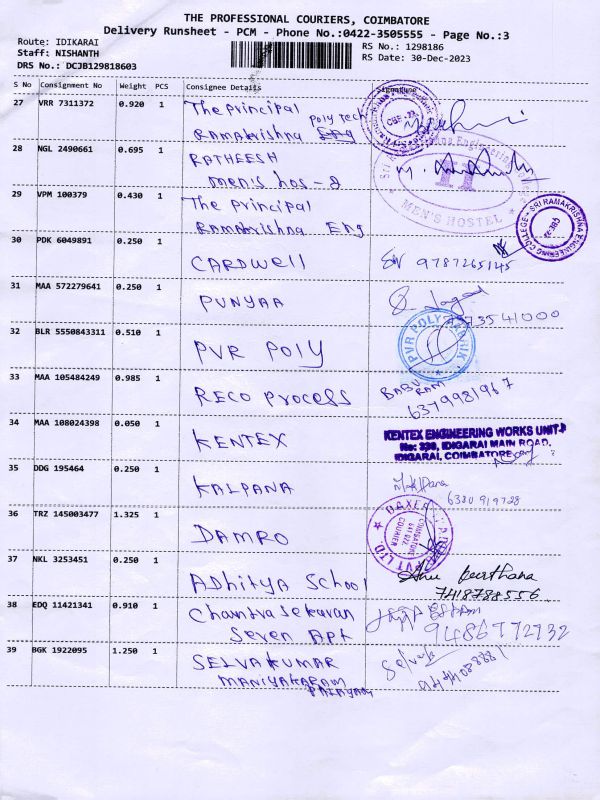 THE PROFESSIONAL COURIERS, COIMBATORE
Delivery Runsheet - PCM - Phone No.:0422-3505555 - Page No.:3
Route: IDIKARAI
Staff: NISHANTH
DRS No.: DCJB129818603
RS No.: 1298186
RS Date: 30-Dec-2023
S No Consignment No Weight PCS Consignee Details Signature
27 VRR 7311372 0.920 1 The principal poly tech
Ramakrishna
28 NGL 2490661 0.695 1 RATHEESH
men's hos-2
MEN'S HOSTEL
29 VPM 100379 0.430 1 The principal
Ramakrishna Eng
SRI RAMAKRISHNA ENGINEERING COLLEGE
30 PDK 6049891 0.250 1 CARDWell 9787265145
31 MAA 572279641 0.250 1 PUNYAA
32 BLR 5550843311 0.510 1 PVR POLY
33 MAA 105484249 0.985 1 RECO Process BABU RAM
6379981967
34 MAA 108024398 0.050 1 KENTEX
KENTEX ENGINEERING WORKS UNIT
IDIGARAI MAIN ROAD,
IDIGARAI, COIMBATORE
35 DDG 195464 0.250 1 KALPANA
6380 919728
36 TRZ 145003477 1.325 1 DAMRO
PVT LTD
37 NKL 3253451 0.250 1 ADhitya School
7418788556
38 EDQ 11421341 0.910 1 Chandrasekaran
Seven Apt 9486772732
39 BGK 1922095 1.250 1 SELVAKUMAR
MANIYAKARAM
PALAYAM